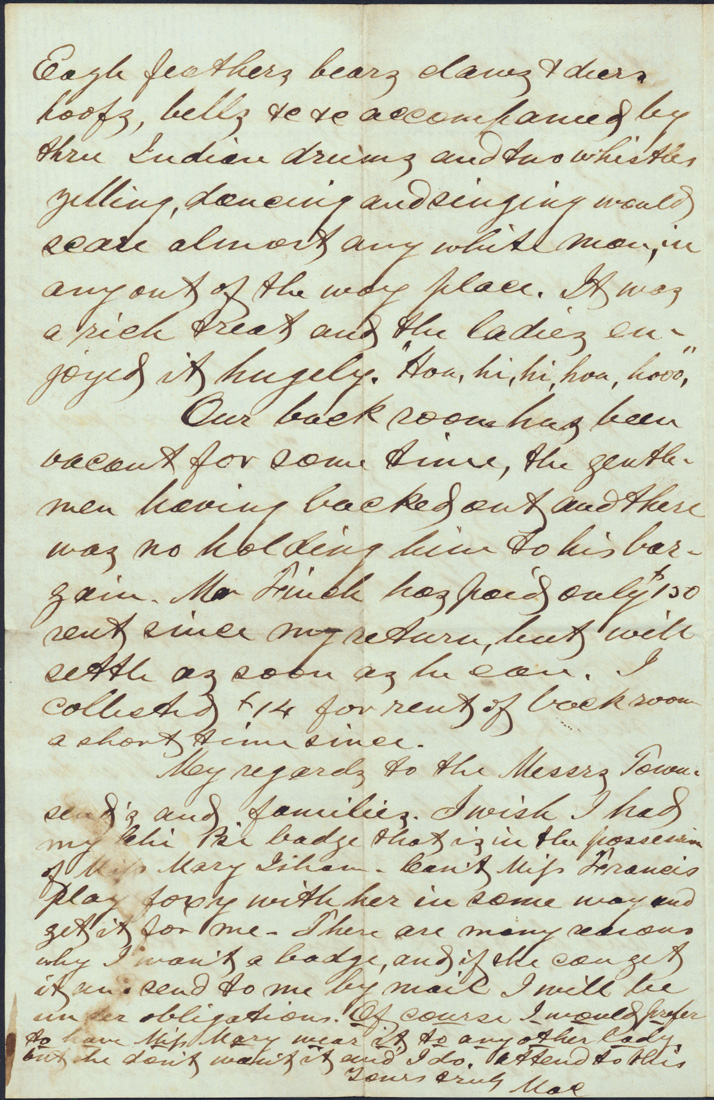 Eagle feathers bears claws & deers
hoofs, bells &c &c accompanied by
three Indian drums and two whistles
yelling, dancing and singing would
scare almost any white man, in
any out of the way place. It was
a rich treat and the ladies en-
joyed it hugely. "Hou, hi, hi, hou, hooo",
Our back room has been
vacant for some time, the gentle-
men having backed out and there
was no holding him to his bar-
gain. Mr Finch has paid only $150
rent since my return, but will
settle as soon as he can. I
collected $14 for rent of back room
a short time since.
My regards to the Messrs Town-
send's and families. I wish I had
my Chi Psi badge that is in the possession
of Miss Mary Isham - Can't Miss Francis
play foxy with her in some way and
get it for me - There are many reasons
why I want a badge, and if she can get
it and send to me by mail I will be
under obligations. Of course I would prefer
to have Miss Mary wear it to any other lady,
but she don't want it and I do. Attend to this
Yours truly Mac